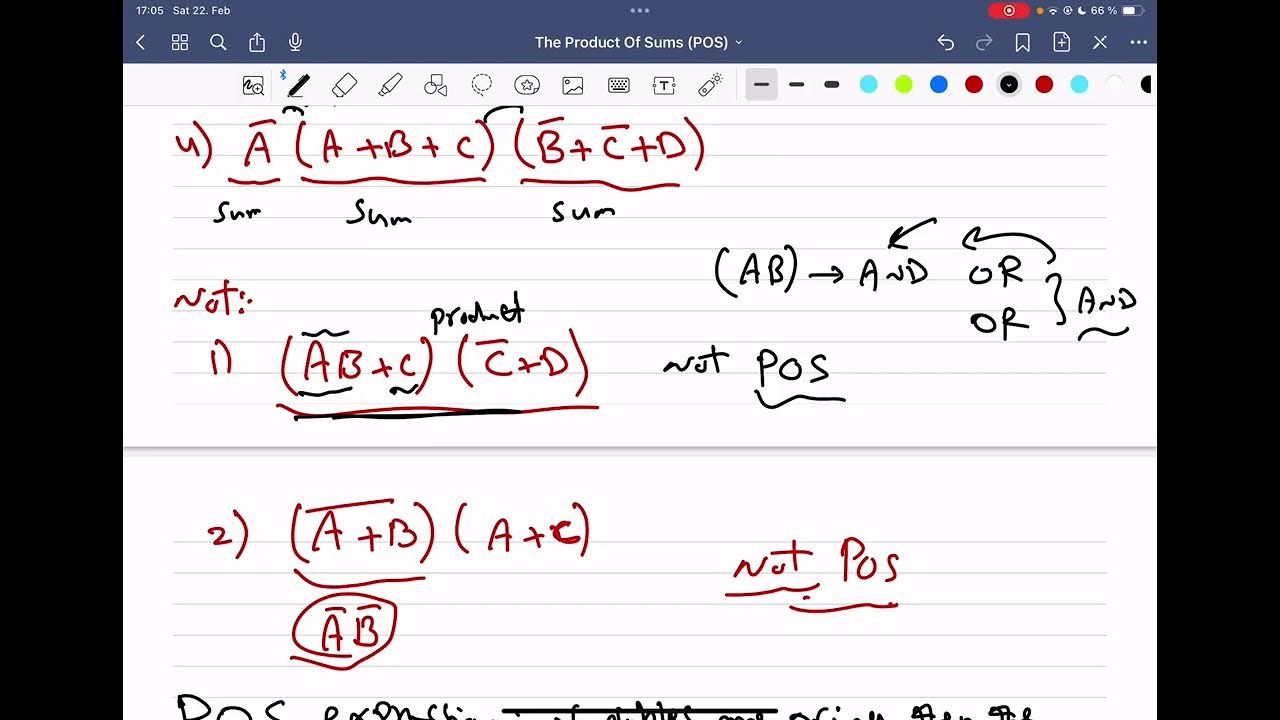 17:05 Sat 22. Feb
66 %
The Product Of Sums (POS)
4) A̅ (A+B+C) (B̅+C̅+D)
sum sum sum
(AB) → AND OR
OR } AND
Not:
product
1) (A̅B+C) (C̅+D) not POS
2) (A̅+̅B̅) (A+C) not POS
A̅ B̅
POS